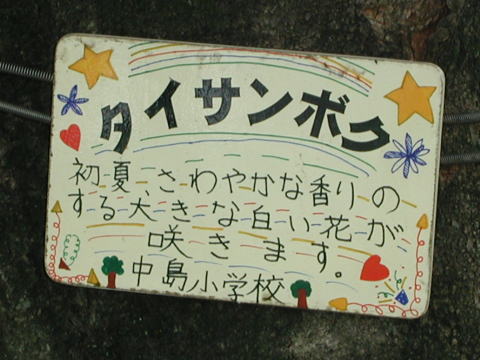 タイサンボク
初夏、さわやかな香りの
する大きな白い花が
咲きます。
中島小学校